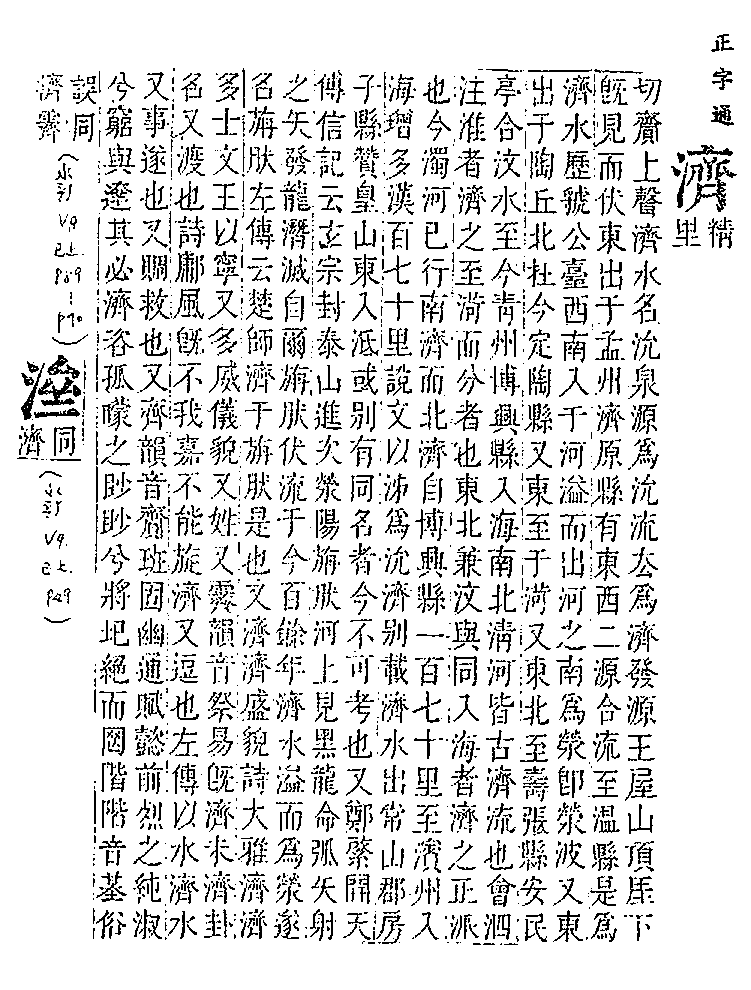 正字通
濟
精里
切齎上聲濟水名沇泉源爲沇流厺爲濟發源王屋山頂厓下
旣見而伏東出于孟州濟原縣有東西二源合流至温縣是爲
濟水歷虢公臺西南入于河溢而出河之南爲滎卽滎波又東
出于陶丘北杜今定陶縣又東至于菏又東北至壽張縣安民
亭合汶水至今靑州博興縣入海南北淸河皆古濟流也會泗
注淮者濟之至菏而分者也東北兼汶與同入海者濟之正派
也今濁河已行南濟而北濟自博興縣一百七十里至濱州入
海增多漢百七十里說文以泲爲沇濟别載濟水出常山郡房
子縣贊皇山東入泜或别有同名者今不可考也又鄭綮開天
傳信記云玄宗封泰山進次滎陽旃肰河上見黑龍命弧矢射
之矢發龍潛滅自爾旃肰伏流于今百餘年濟水溢而爲滎遂
名旃肰左傳云楚師濟于旃肰是也又濟濟盛貌詩大雅濟濟
多士文王以寧又多威儀貌又姓又霽韻音祭易旣濟未濟卦
名又渡也詩鄘風旣不我嘉不能旋濟又逗也左傳以水濟水
又事遂也又賙救也又齊韻音齎班固幽通賦懿前烈之純淑
兮窮與達其必濟咨孤矇之眇眇兮將圯絕而罔階階音基俗
誤同
濟霽
(永彩 V9 已上 P89-P90)
𣸣
同濟
(永彩 V9 已上 P29)